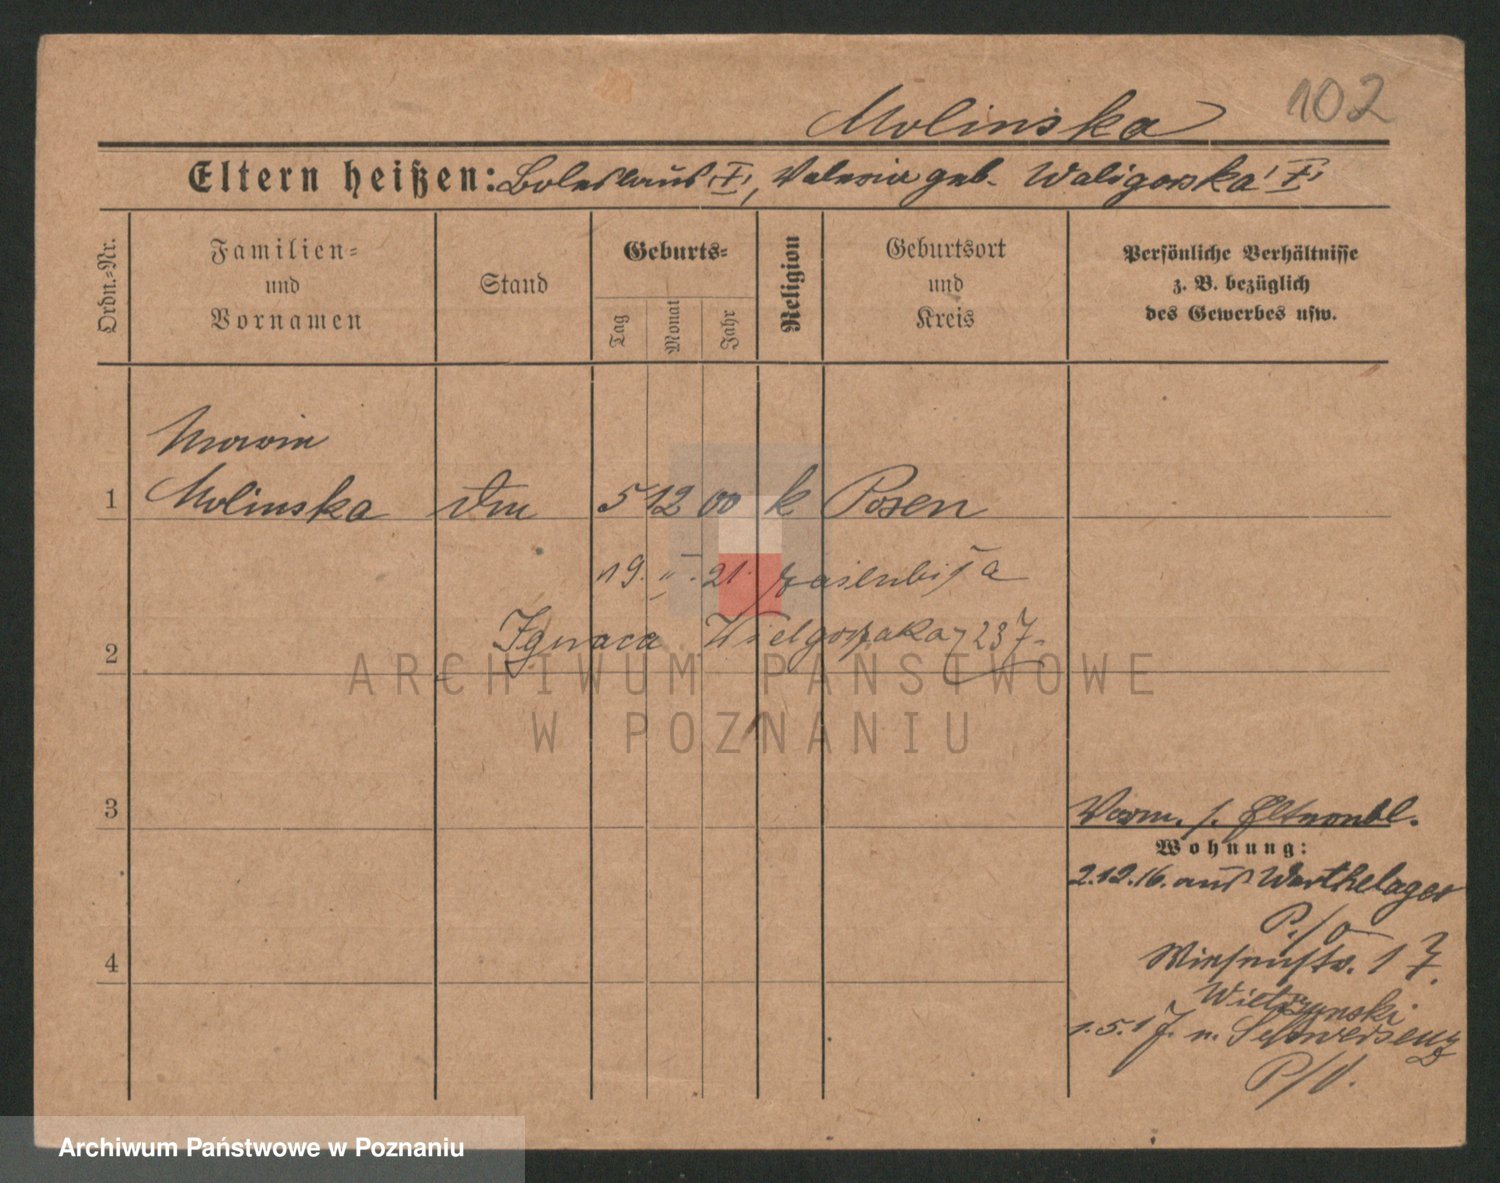 102
Molinska
Eltern heißen: Boleslaus †, Valeria geb. Waligorska †
Ordn.-Nr.
Familien-
und
Vornamen
Stand
Geburts-
Tag
Monat
Jahr
Religion
Geburtsort
und
Kreis
Persönliche Verhältnisse
z. B. bezüglich
des Gewerbes usw.
1
Molinska
5 12 00 k Posen
19. II. 21.
2
Ignaca
237
3
Wohnung:
2.12.16. aus Warthelager
4
Wiesenstr. 17
1.5.17. n. Schwersenz
ARCHIWUM PAŃSTWOWE
W POZNANIU
Archiwum Państwowe w Poznaniu